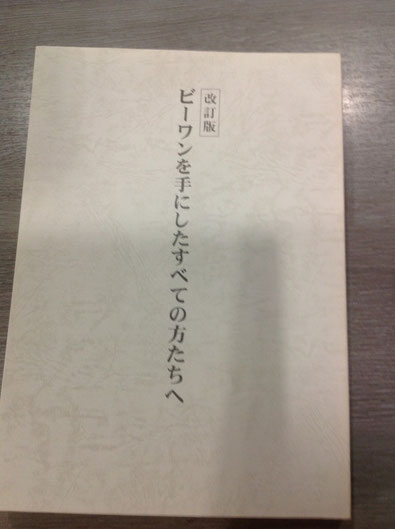 改訂版
ビーワンを手にしたすべての方たちへ